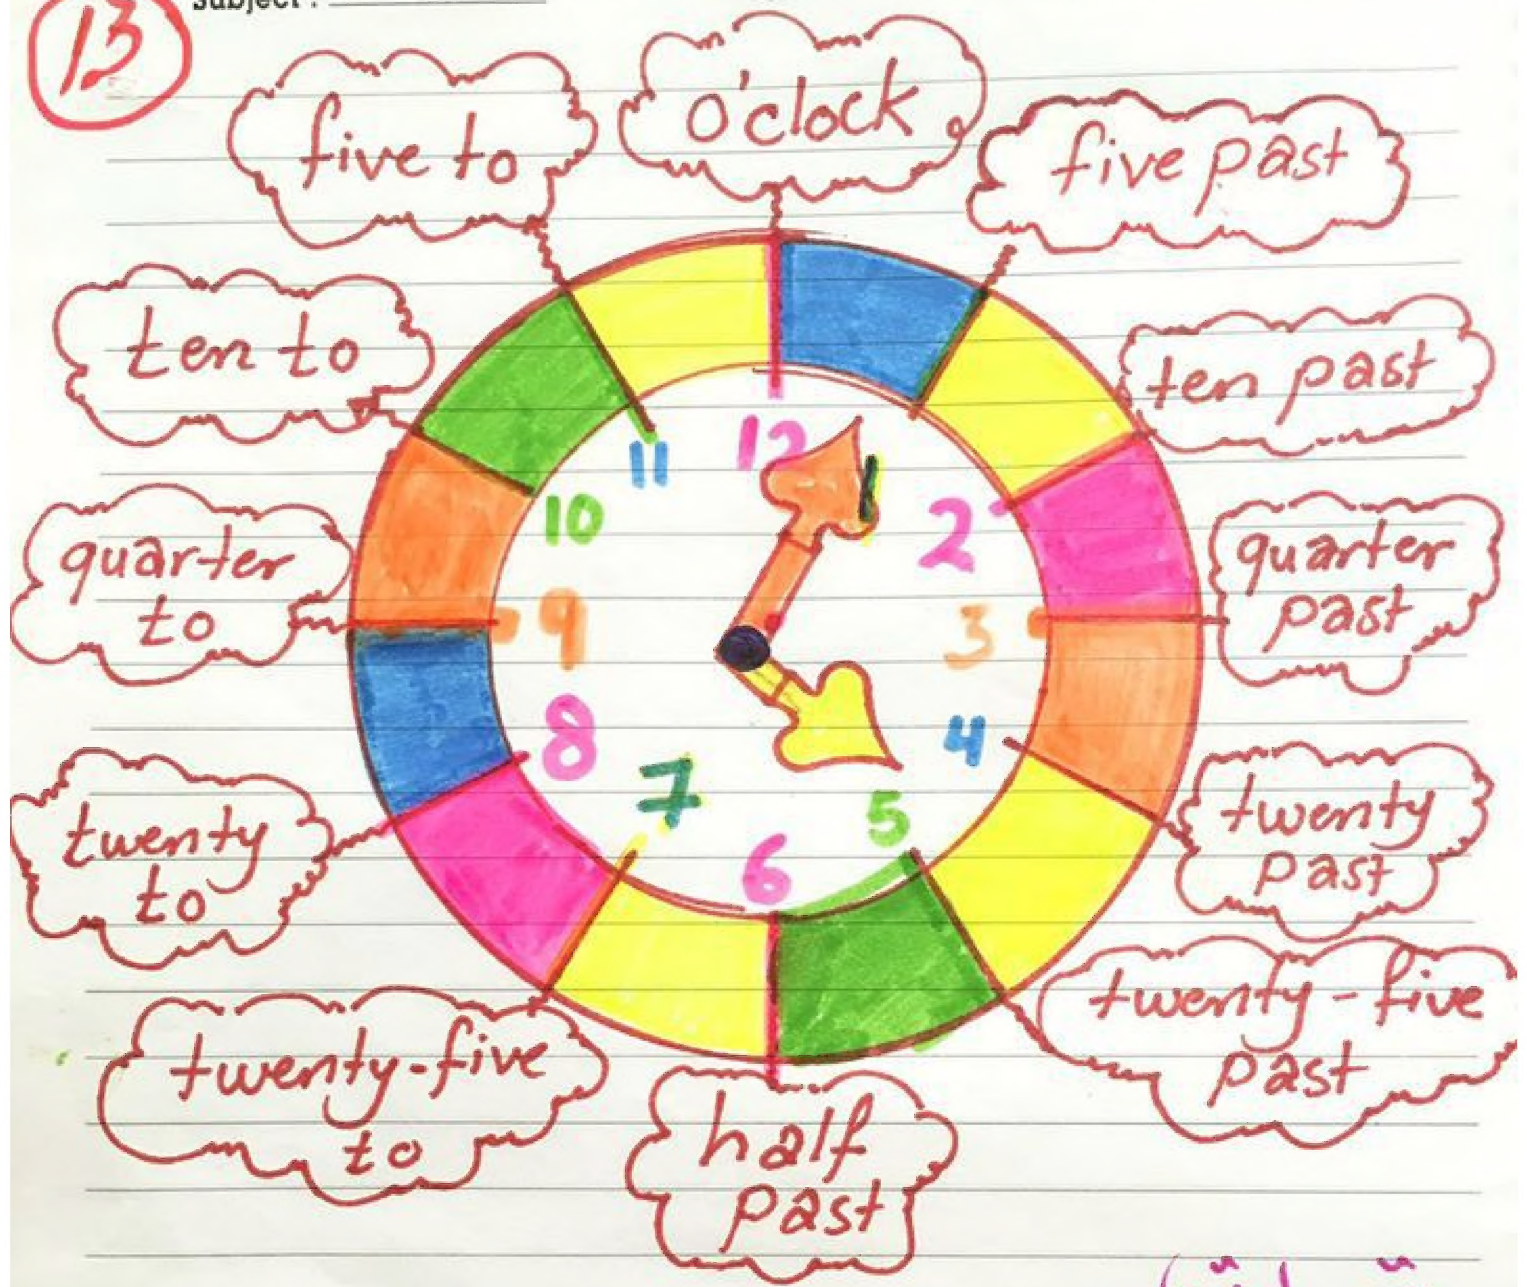 13
subject :
five to
o'clock
five past
ten to
ten past
quarter
to
quarter
past
twenty
to
twenty
past
twenty-five
to
twenty-five
past
half
past
12
1
2
3
4
5
6
7
8
9
10
11